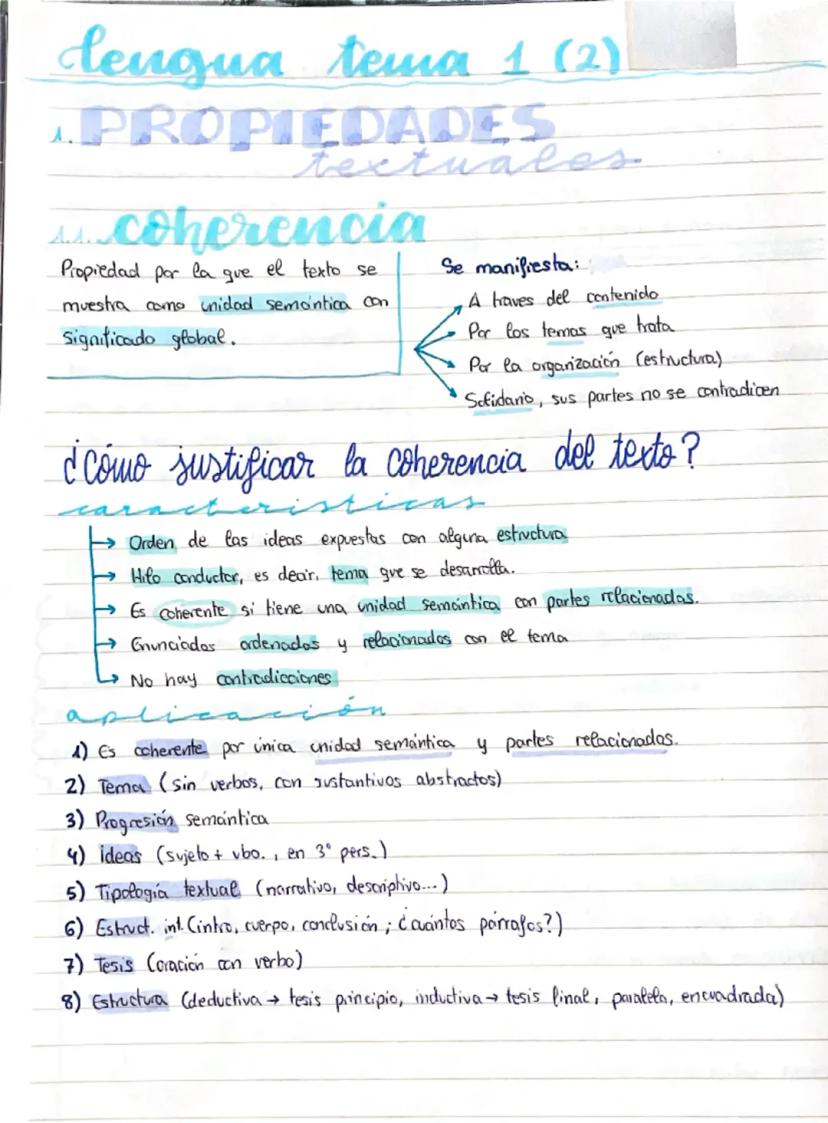 lengua tema 1 (2)
1. PROPIEDADES
textuales
1.1. coherencia
Propiedad por la que el texto se
muestra como unidad semántica con
significado global.
Se manifiesta:
A traves del contenido
Por los temas que trata
Por la organización (estructura)
Solidario, sus partes no se contradicen
¿Cómo justificar la coherencia del texto?
caracteristicas
Orden de las ideas expuestas con alguna estructura
Hilo conductor, es decir, tema que se desarrolla.
Es coherente si tiene una unidad semántica con partes relacionadas.
Enunciados ordenados y relacionados con el tema
No hay contradicciones
aplicación
1) Es coherente por única unidad semántica y partes relacionadas.
2) Tema (sin verbos, con sustantivos abstractos)
3) Progresión semántica
4) ideas (sujeto + vbo., en 3º pers.)
5) Tipología textual (narrativo, descriptivo...)
6) Estruct. int. (intro, cuerpo, conclusión ; ¿cuántos párrafos?)
7) Tesis (oración con verbo)
8) Estructura (deductiva → tesis principio, inductiva → tesis final, paralela, encuadrada)